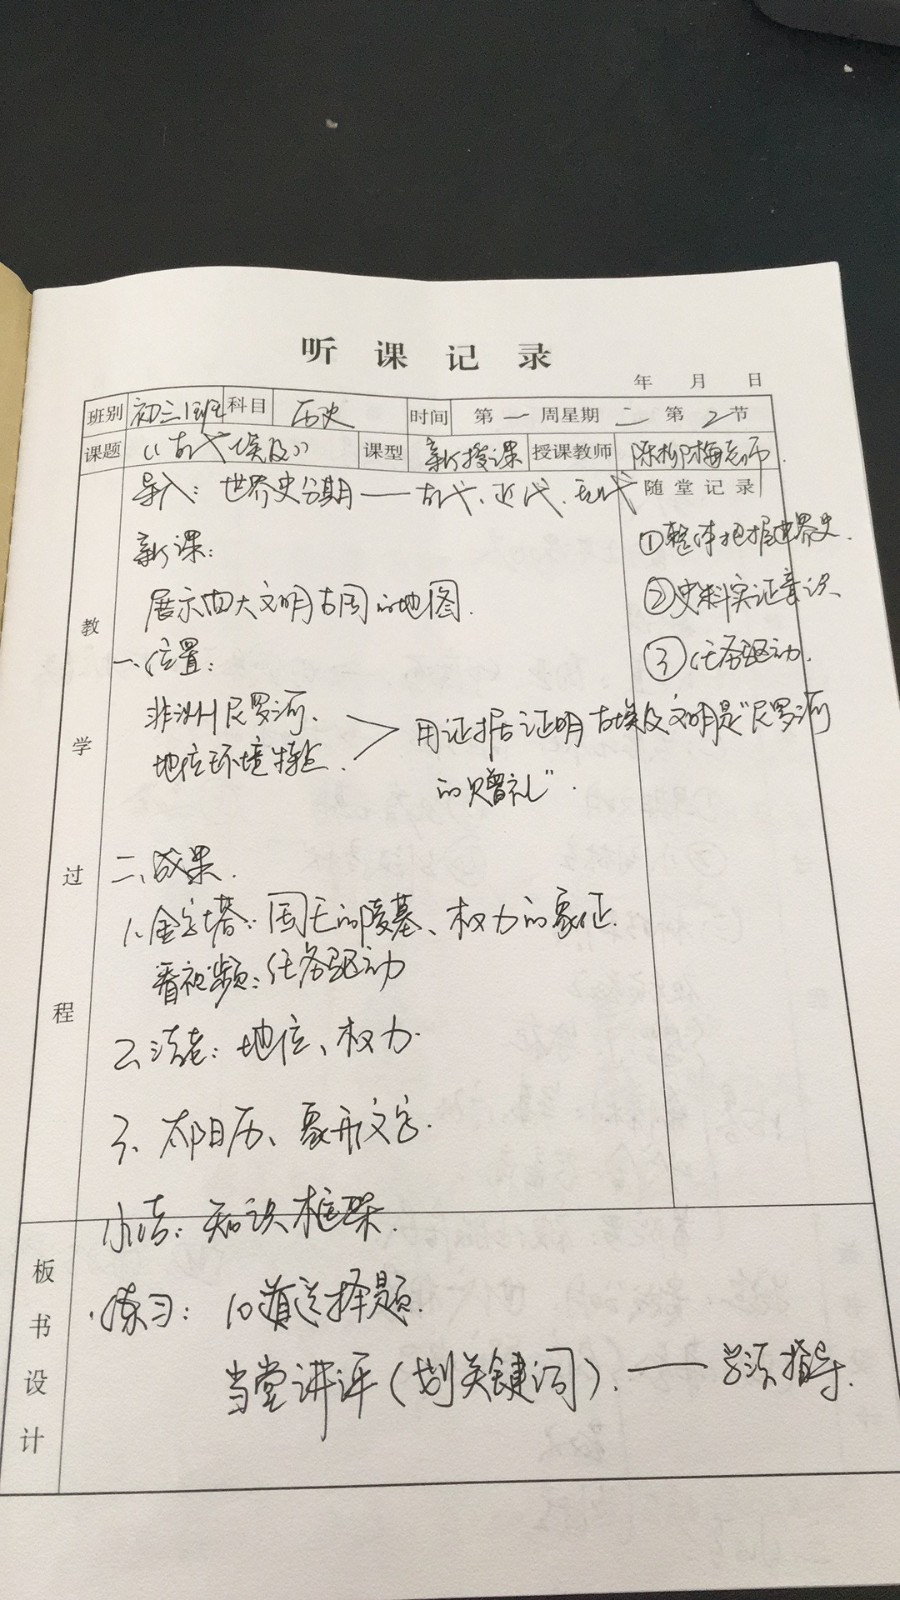 听课记录
年 月 日
班别 初三1班 科目 历史 时间 第一周星期二第2节
课题 《古代埃及》 课型 新授课 授课教师 陈柳梅老师.
导入: 世界史分期——古代、近代、现代 随堂记录
新课: ①整体把握世界史.
展示四大文明古国的地图. ②史料实证意识.
一、位置: ③任务驱动.
非洲尼罗河、
地位环境特点. > 用证据证明古埃及文明是“尼罗河
的赠礼”.
二、成果.
1、金字塔: 国王的陵墓、权力的象征.
看视频: 任务驱动
2、法老: 地位、权力.
3、太阳历、象形文字.
小结: 知识框架.
练习: 10道选择题.
当堂讲评(划关键词).——学法指导.
教学过程
板书设计